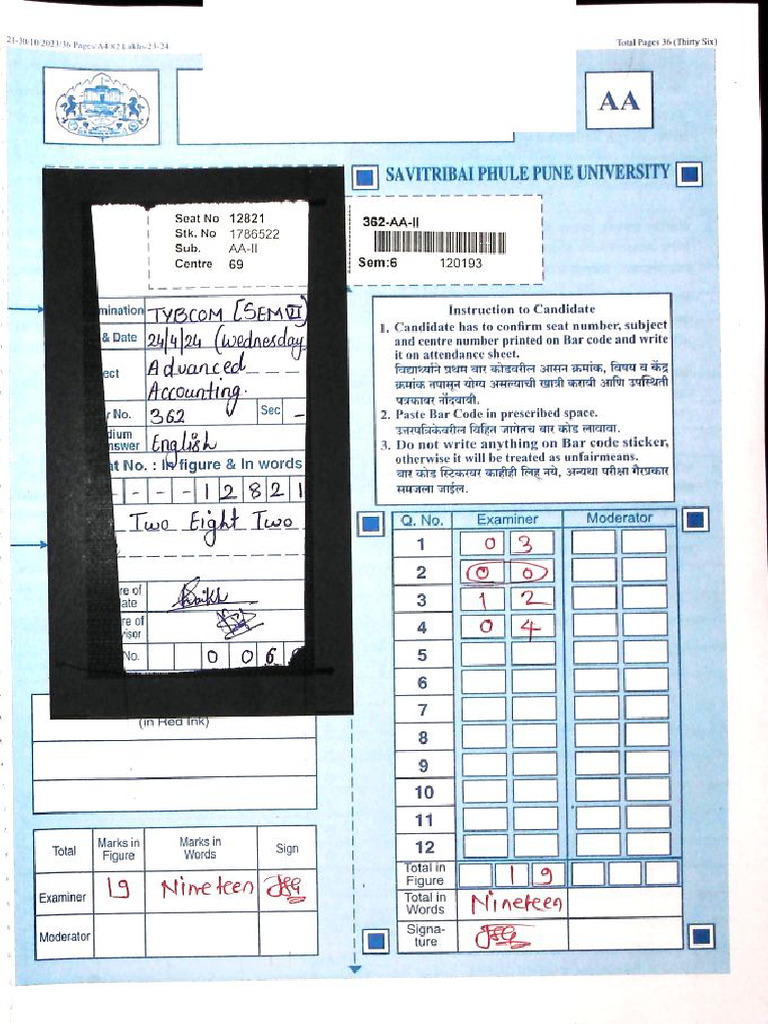 21-30/10/2023/36 Pages/A4 82 Lakhs-23-24
Total Pages 36 (Thirty Six)
AA
SAVITRIBAI PHULE PUNE UNIVERSITY
Seat No 12821
Stk. No 1786522
Sub. AA-II
Centre 69
362-AA-II
Sem:6 120193
mination TYBCOM [SEM VI]
& Date 24/4/24 (Wednesday
ect Advanced
Accounting.
r No. 362 Sec –
dium
nswer English
at No. : In figure & In words
- - - - 1 2 8 2 1
Two Eight Two
re of
ate
re of
visor
No. 0 0 6
(in Red Ink)
Instruction to Candidate
1. Candidate has to confirm seat number, subject
and centre number printed on Bar code and write
it on attendance sheet.
विद्यार्थ्याने प्रथम बार कोडवरील आसन क्रमांक, विषय व केंद्र
क्रमांक तपासून योग्य असल्याची खात्री करावी आणि उपस्थिती
पत्रकावर नोंदवावी.
2. Paste Bar Code in prescribed space.
उत्तरपत्रिकेवरील विहित जागेतच बार कोड लावावा.
3. Do not write anything on Bar code sticker,
otherwise it will be treated as unfairmeans.
बार कोड स्टिकरवर काहीही लिहू नये, अन्यथा परीक्षा गैरप्रकार
समजला जाईल.
Q. No. Examiner Moderator
1 0 3
2 0 0
3 1 2
4 0 4
5
6
7
8
9
10
11
12
Total in
Figure 1 9
Total in
Words Nineteen
Signa-
ture
Total Marks in
Figure Marks in
Words Sign
Examiner 19 Nineteen
Moderator